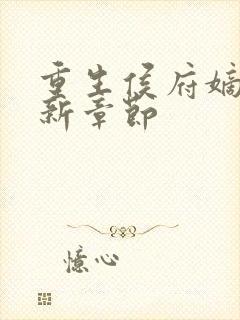 重生侯府嫡
新章节
憶心